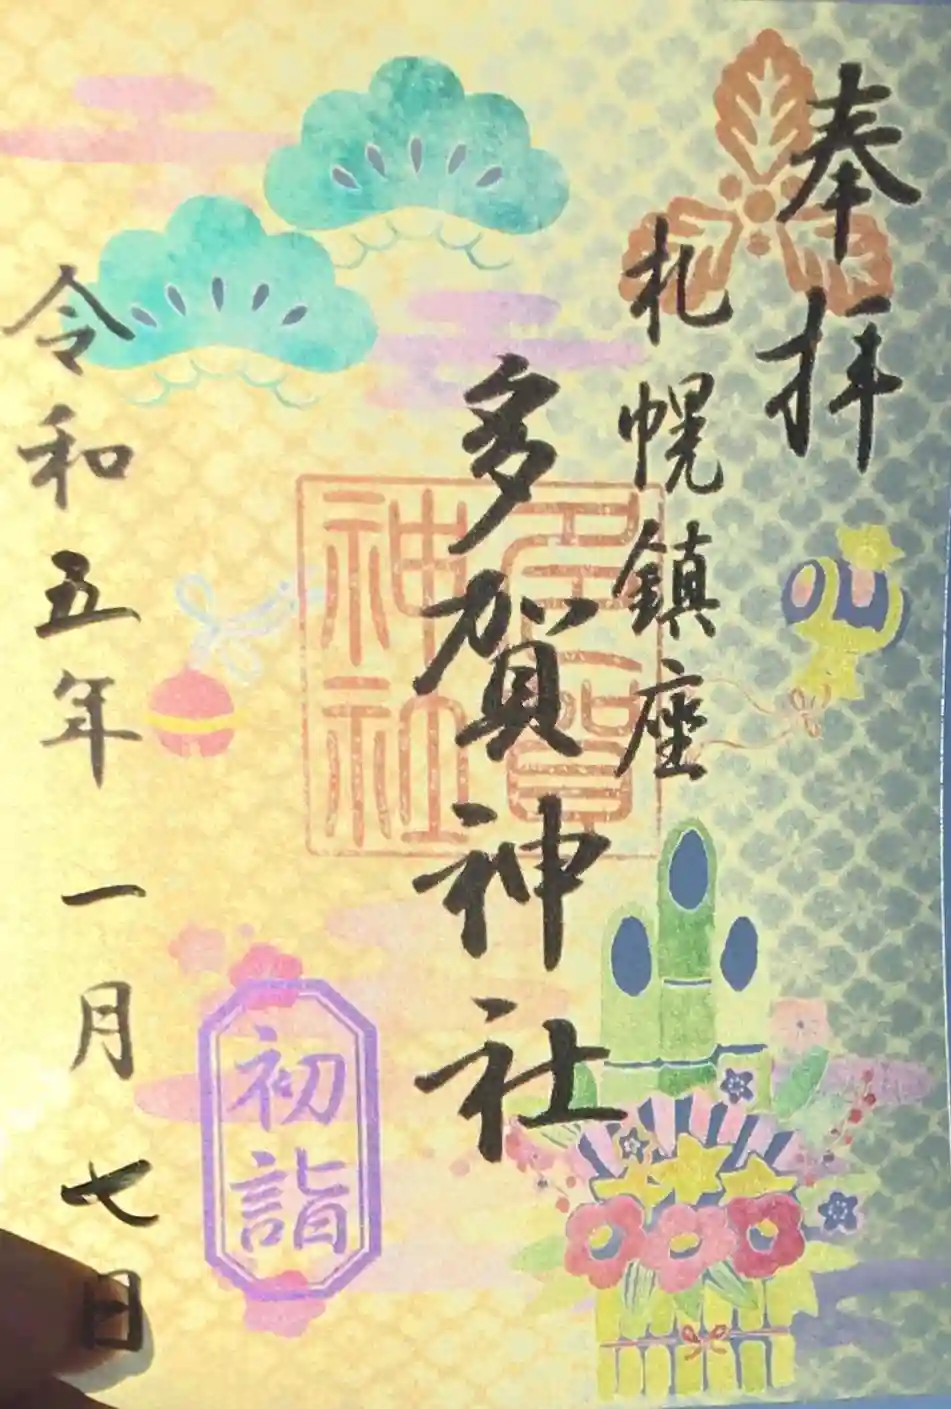 奉拝
札幌鎮座
多賀神社
多賀神社
初詣
令和五年一月七日